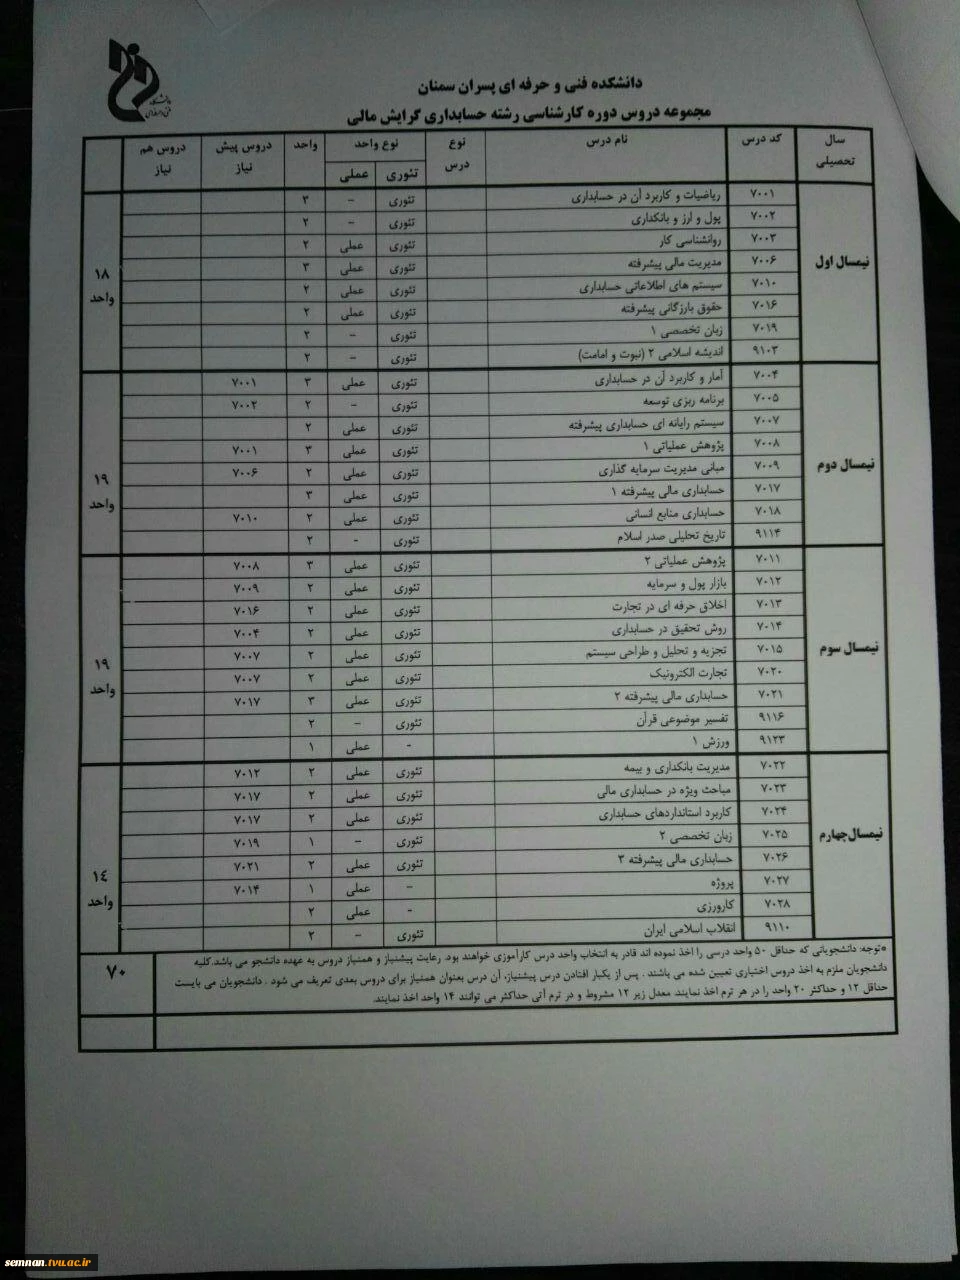 دانشکده فنی و حرفه ای پسران سمنان
مجموعه دروس دوره کارشناسی رشته حسابداری گرایش مالی
سال تحصیلی کد درس نام درس نوع درس نوع واحد تئوری عملی واحد دروس پیش نیاز دروس هم نیاز
نیمسال اول
۷۰۰۱ ریاضیات و کاربرد آن در حسابداری تئوری - ۳
۷۰۰۲ پول و ارز و بانکداری تئوری - ۲
۷۰۰۳ روانشناسی کار تئوری عملی ۲
۷۰۰۶ مدیریت مالی پیشرفته تئوری عملی ۳
۷۰۱۰ سیستم های اطلاعاتی حسابداری تئوری عملی ۲
۷۰۱۶ حقوق بازرگانی پیشرفته تئوری عملی ۲
۷۰۱۹ زبان تخصصی ۱ تئوری - ۲
۹۱۰۳ اندیشه اسلامی ۲ (نبوت و امامت) تئوری - ۲
۱۸ واحد
نیمسال دوم
۷۰۰۴ آمار و کاربرد آن در حسابداری تئوری عملی ۳ ۷۰۰۱
۷۰۰۵ برنامه ریزی توسعه تئوری - ۲ ۷۰۰۲
۷۰۰۷ سیستم رایانه ای حسابداری پیشرفته تئوری عملی ۲
۷۰۰۸ پژوهش عملیاتی ۱ تئوری عملی ۳ ۷۰۰۱
۷۰۰۹ مبانی مدیریت سرمایه گذاری تئوری عملی ۲ ۷۰۰۶
۷۰۱۷ حسابداری مالی پیشرفته ۱ تئوری عملی ۳
۷۰۱۸ حسابداری منابع انسانی تئوری عملی ۲ ۷۰۱۰
۹۱۱۴ تاریخ تحلیلی صدر اسلام تئوری - ۲
۱۹ واحد
نیمسال سوم
۷۰۱۱ پژوهش عملیاتی ۲ تئوری عملی ۳ ۷۰۰۸
۷۰۱۲ بازار پول و سرمایه تئوری عملی ۲ ۷۰۰۹
۷۰۱۳ اخلاق حرفه ای در تجارت تئوری عملی ۲ ۷۰۱۶
۷۰۱۴ روش تحقیق در حسابداری تئوری عملی ۲ ۷۰۰۴
۷۰۱۵ تجزیه و تحلیل و طراحی سیستم تئوری عملی ۲ ۷۰۰۷
۷۰۲۰ تجارت الکترونیک تئوری عملی ۲ ۷۰۰۷
۷۰۲۱ حسابداری مالی پیشرفته ۲ تئوری عملی ۳ ۷۰۱۷
۹۱۱۶ تفسیر موضوعی قرآن تئوری - ۲
۹۱۲۳ ورزش ۱ - عملی ۱
۱۹ واحد
نیمسال چهارم
۷۰۲۲ مدیریت بانکداری و بیمه تئوری عملی ۲ ۷۰۱۲
۷۰۲۳ مباحث ویژه در حسابداری مالی تئوری عملی ۲ ۷۰۱۷
۷۰۲۴ کاربرد استانداردهای حسابداری تئوری عملی ۲ ۷۰۱۷
۷۰۲۵ زبان تخصصی ۲ تئوری - ۱ ۷۰۱۹
۷۰۲۶ حسابداری مالی پیشرفته ۳ تئوری عملی ۲ ۷۰۲۱
۷۰۲۷ پروژه - عملی ۱ ۷۰۱۴
۷۰۲۸ کارورزی - عملی ۲
۹۱۱۰ انقلاب اسلامی ایران تئوری - ۲
۱۴ واحد
*توجه: دانشجویانی که حداقل ۵۰ واحد درسی را اخذ نموده اند قادر به انتخاب واحد درس کارآموزی خواهند بود. رعایت پیشنیاز و همنیاز دروس به عهده دانشجو می باشد.کلیه
دانشجویان ملزم به اخذ دروس اختیاری تعیین شده می باشند . پس از یکبار افتادن درس پیشنیاز، آن درس بعنوان همنیاز برای دروس بعدی تعریف می شود . دانشجویان می بایست
حداقل ۱۲ و حداکثر ۲۰ واحد را در هر ترم اخذ نمایند. معدل زیر ۱۲ مشروط و در ترم آتی حداکثر می توانند ۱۴ واحد اخذ نمایند.
۷۰
semnan.tvu.ac.ir